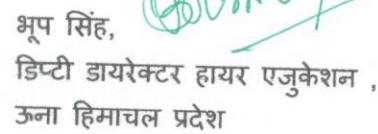 भूप सिंह,
डिप्टी डायरेक्टर हायर एजुकेशन ,
ऊना हिमाचल प्रदेश